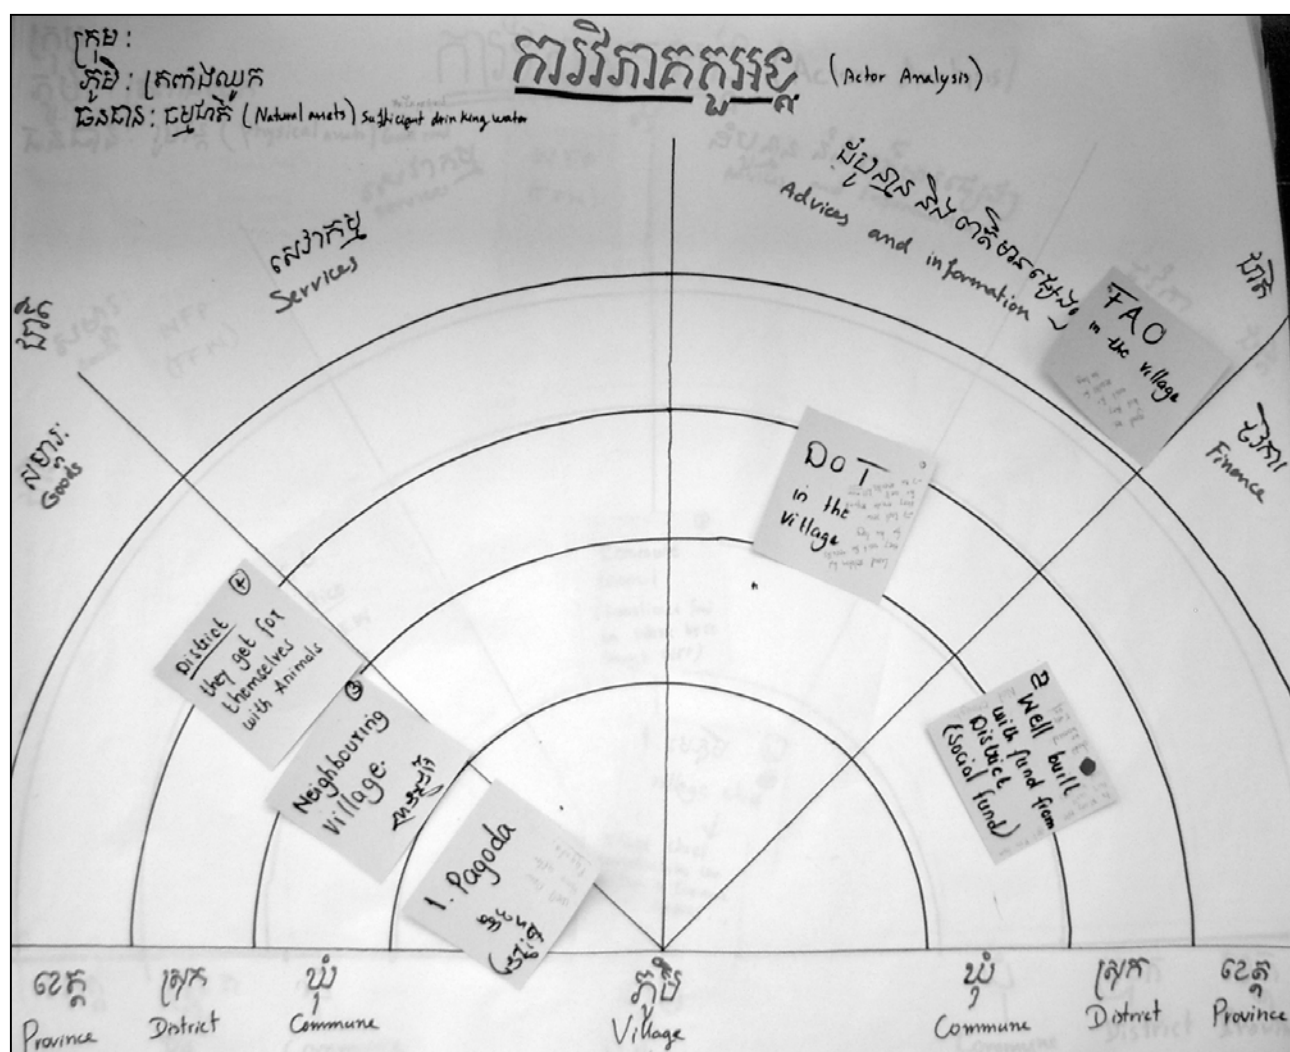 ក្រុម :
ភូមិ : ត្រពាំងឈូក
ធនធាន : ធម្មជាតិ (Natural assets) sufficient drinking water
ការវិភាគតួអង្គ (Actor Analysis)
សេវាកម្ម
Services
ដំបូន្មាន និង ពាត៌មានផ្សេងៗ
Advices and information
ជាតិ
សម្ភារៈ
Goods
ថវិកា
Finance
FAO
in the village
DoT
in the
village
4
District
they get for
themselves
with Animals
3
Neighbouring
village.
1. Pagoda
2 Well built
with fund from
District
(social fund)
ខេត្ត
ស្រុក
ឃុំ
ភូមិ
ឃុំ
ស្រុក
ខេត្ត
Province
District
Commune
Village
Commune
District
Province